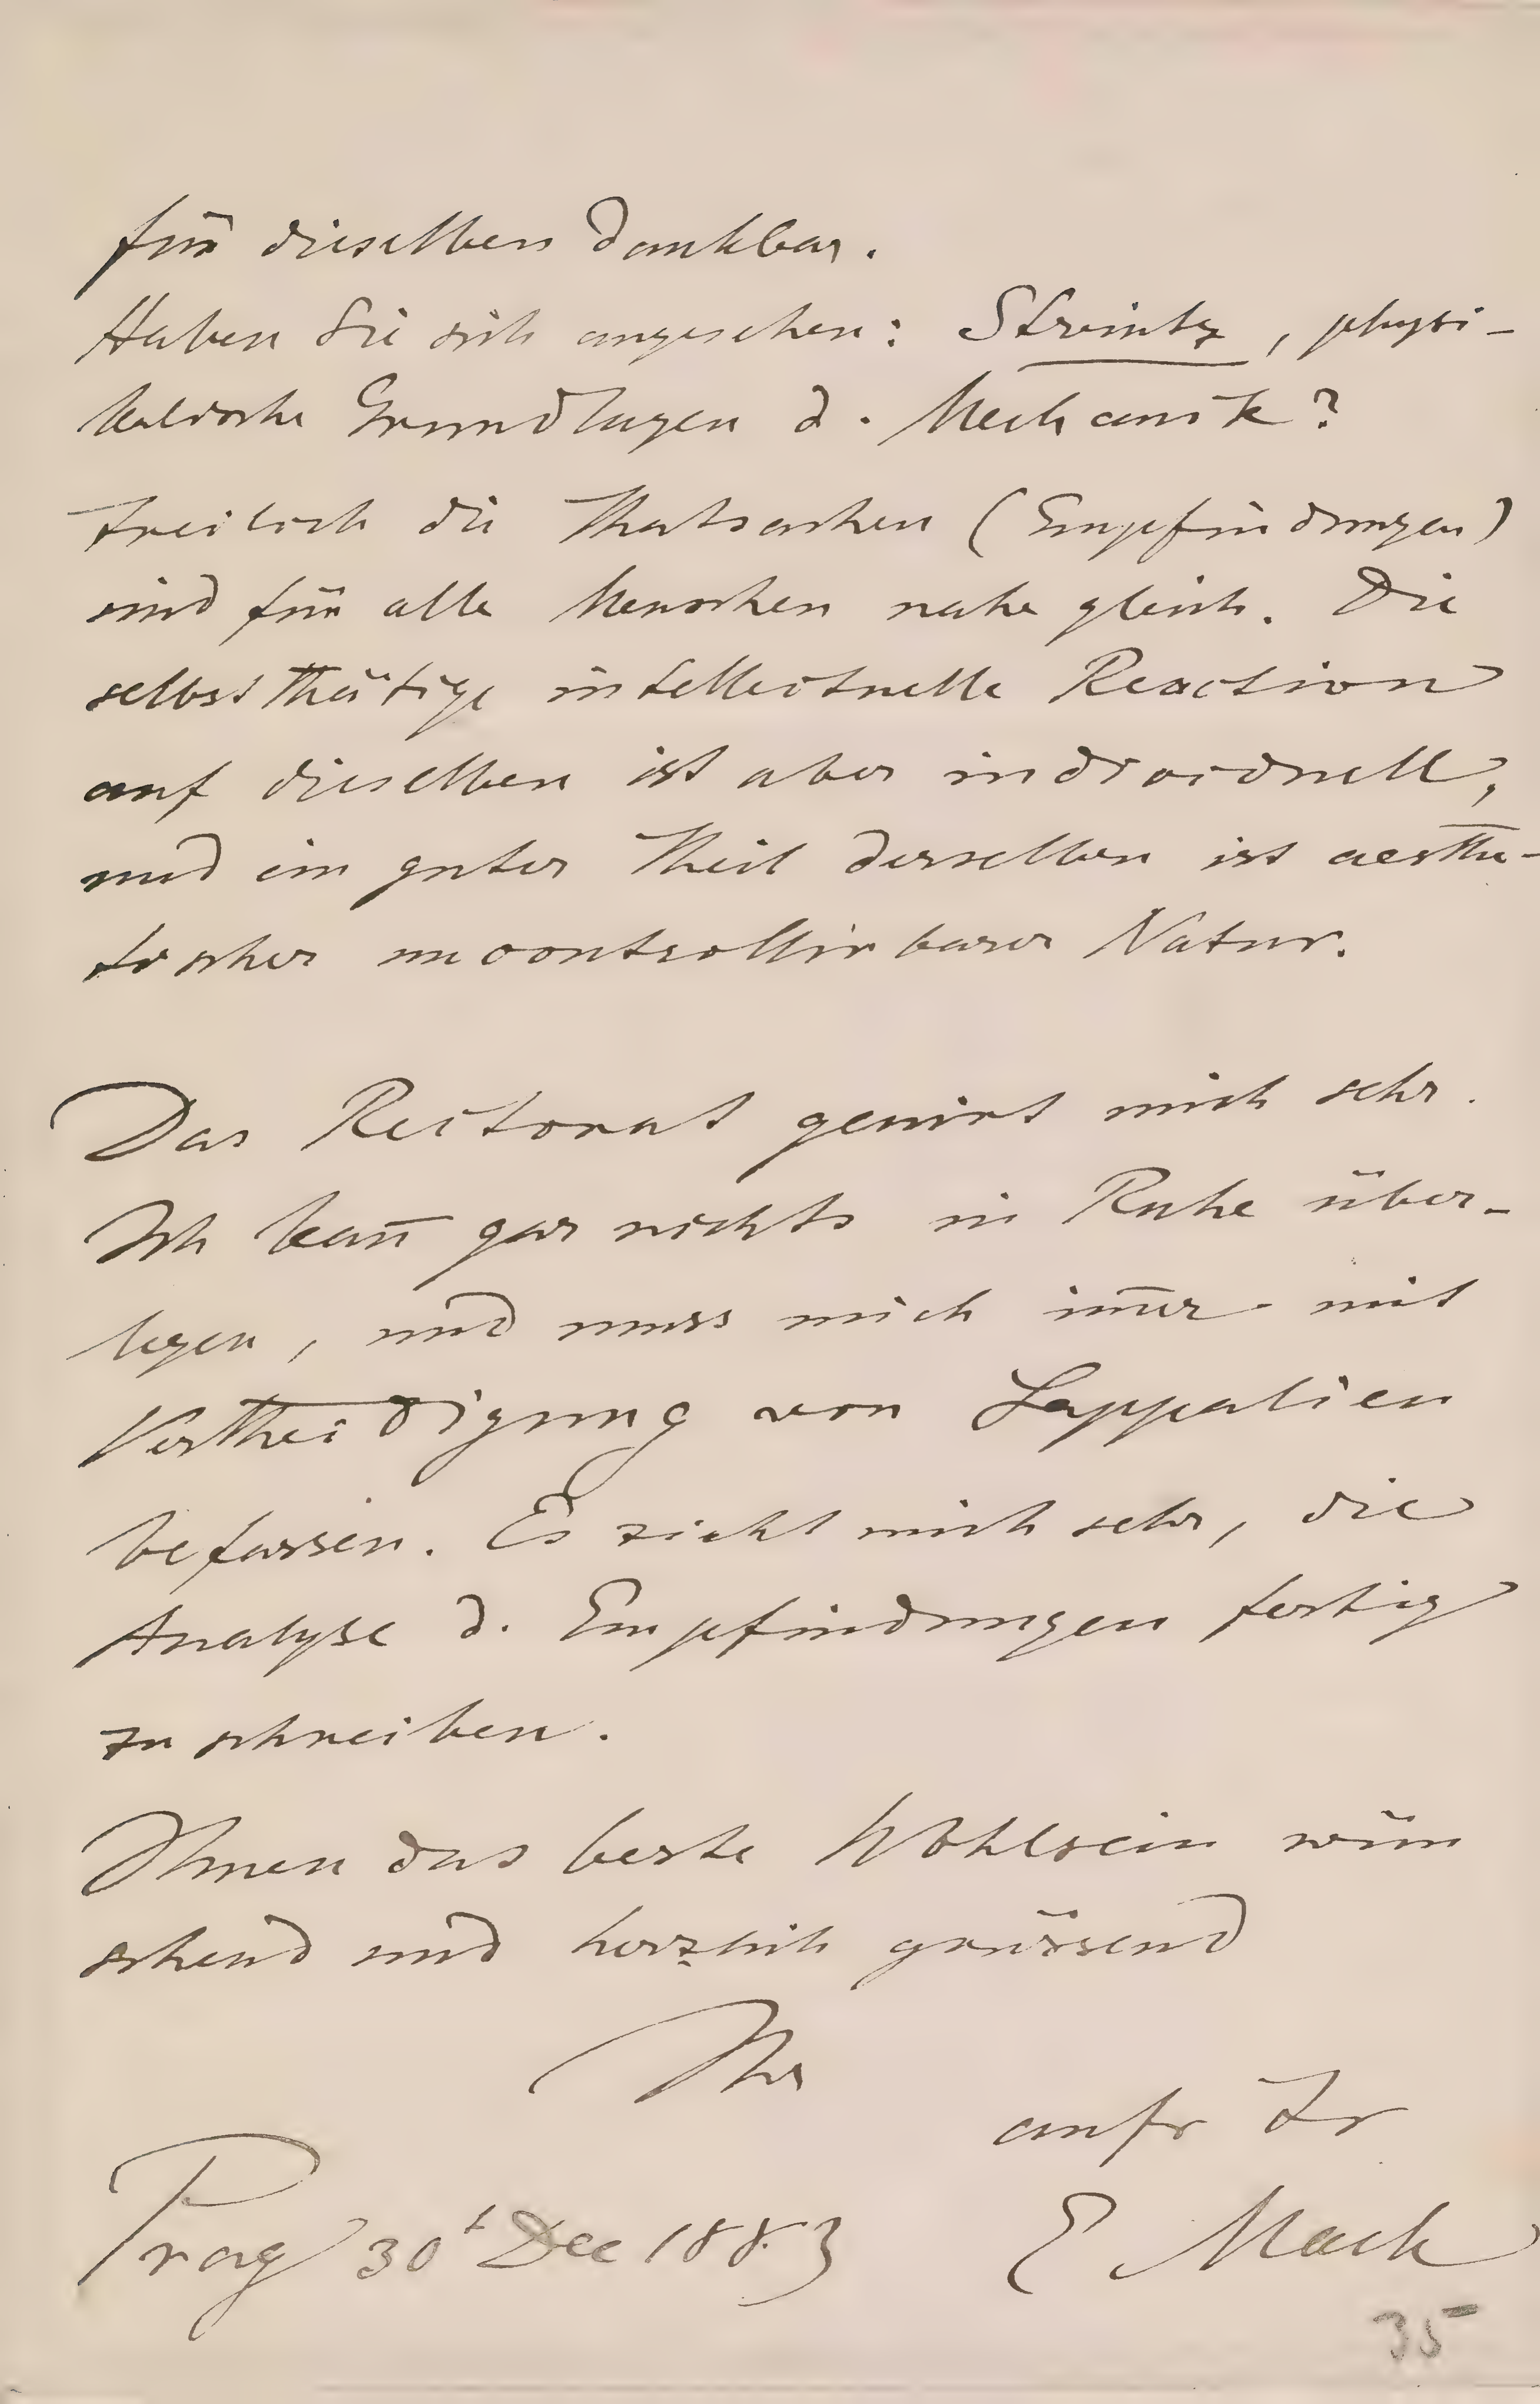 für dieselben dankbar.
Haben Sie sich angesehen: Streintz, physi-
kalische Grundlagen d. Mechanik?
Freilich die Thatsachen (Empfindungen)
sind für alle Menschen nahe gleich. Die
selbstthätige intellectuelle Reaction
auf dieselben ist aber individuell,
und ein guter Theil derselben ist aesthe-
tischer uncontrollirbarer Natur.
Das Rectorat genirt mich sehr.
Ich kan̄ gar nichts in Ruhe über-
legen, und muss mich im̄er mit
Vertheidigung von Lappalien
befassen. Es zieht mich sehr, die
Analyse d. Empfindungen fertig
zu schreiben.
Ihnen das beste Wohlsein wün
schend und herzlich grüssend
Ihr
aufr Fr
E Mach
Prag 30t Dec 1883
35